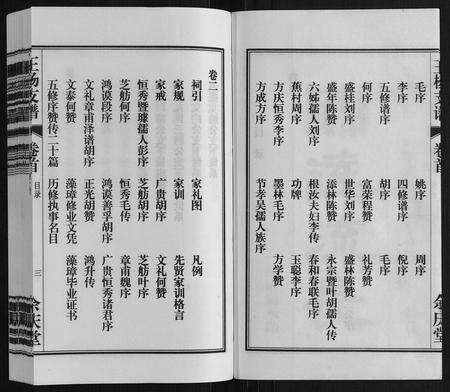 毛序 姚序 周序
李序 四修谱序 倪序
五修谱序 胡序 毛序
何序 富荣程赞 礼芳赞
盛桂刘序 世华刘序 盛林陈赞
盛年陈赞 添林陈赞 永宗暨叶胡儒人传
六姊儒人刘序 根汝夫妇李传 春和春联毛序
蕉村周序 功牌 玉聪李序
方庆恒秀李序 墨林毛序 方学赞
方成方序 节孝吴儒人族序
卷二
祠引 家礼图 凡例
家规 家训 先贤家训格言
家戒 广贵胡序 文礼何赞
恒秀暨璩儒人彭序 芝舫胡序 芝舫叶序
芝舫何序 恒秀毛传 章甫魏序
鸿谟段序 鸿谟善孚胡序 广贵恒秀诸君序
文礼章甫泽谱胡序 正光胡赞 鸿升传
文泰何赞 藻璋修业文凭 藻璋毕业证书
五修序赞传二十篇 历修执事名目
王杨支谱 卷首 目录 三 余庆堂